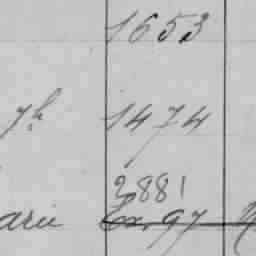 1653
7h 1474
2881
arie Ex. 97